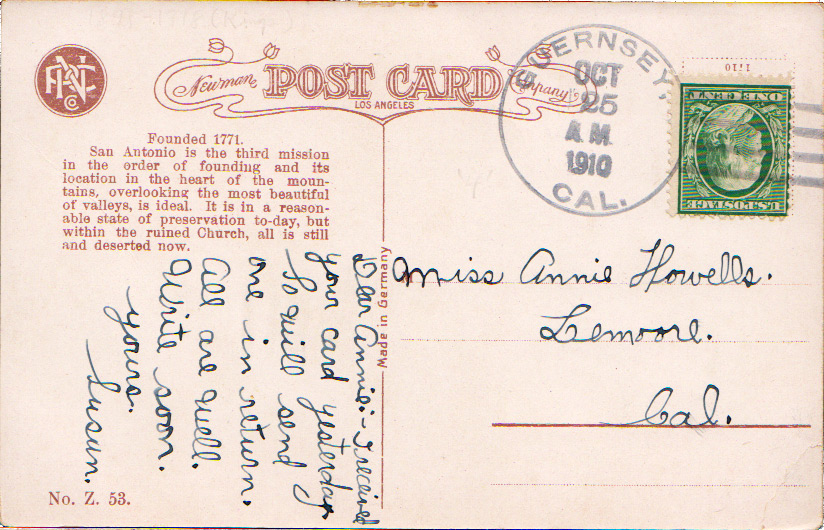 1771-1918 (Kings)
FNNC Co
Newman POST CARD Company
LOS ANGELES
GUERNSEY,
OCT
25
A.M.
1910
CAL.
1/10
ONE CENT
U.S. POSTAGE
Founded 1771.
San Antonio is the third mission
in the order of founding and its
location in the heart of the moun-
tains, overlooking the most beautiful
of valleys, is ideal. It is in a reason-
able state of preservation to-day, but
within the ruined Church, all is still
and deserted now.
Dear Annie:- I received
your card yesterday.
So will send
one in return.
All are well.
Write soon.
yours.
Susan.
Made in Germany
Miss Annie Howells.
Lemoore.
Cal.
No. Z. 53.